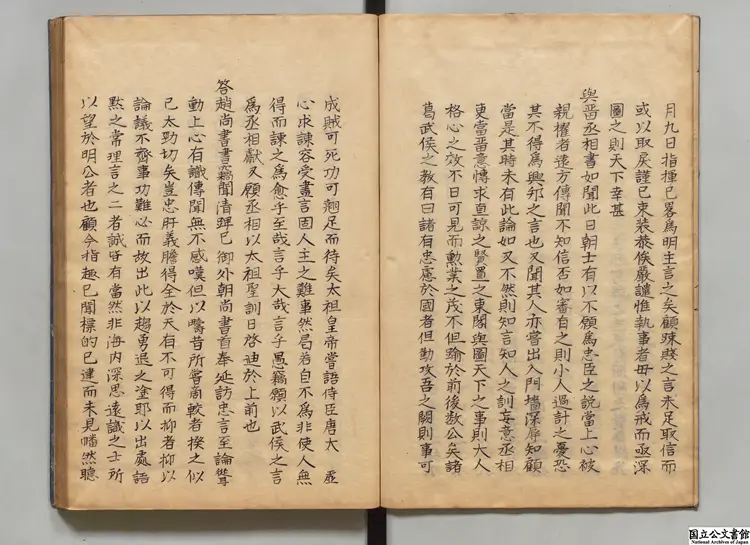 月九日指揮已畧為明主言之矣顧踈賤之言未足取信而
或以取戻謹已束装恭俟嚴譴惟執事者毋以為戒而亟深
圖之則天下幸甚
與晋丞相書如聞此日朝士有以不願為忠臣之説當上心被
親擢者逺方傳聞不知信否如審有之則小人過計之憂恐
其不得為興邦之言也又聞其人亦嘗出入門墻深辱知顧
當是其時未有此論如又不然則知言知人之訓妄意丞相
更當畱意慱求直諒之賢置之東閣與圖天下之事則大人
格心之效不日可見而勲業之茂不但踰於前後数公矣諸
葛武侯之教有曰諸有忠慮於國者但勤攻吾之闕則事可
成賊可死功可翹足而待矣太祖皇帝嘗語侍臣唐太
虚
心求諌容受盡言固人主之難事然曷若自不為非使人無
得而諌之為愈乎至哉言乎大哉言乎愚竊願以武侯之言
為丞相獻又願丞相以太祖聖訓日啓迪於上前也
答趙尚書書竊聞清蹕已御外朝尚書首奉延訪忠言至論聳
動上心有識傳聞無不感嘆但以疇昔所嘗商較者揆之似
已太勁切矣豈忠肝義膽得全於天有不可得而抑者抑以
論議不齊事功難必而故出此以趨勇退之塗耶以出處語
黙之常理言之二者誠皆有當然非海内深思逺識之士所
以望於明公者也顧今指趣已聞標的已建而未見幡然聽
国立公文書館
National Archives of Japan